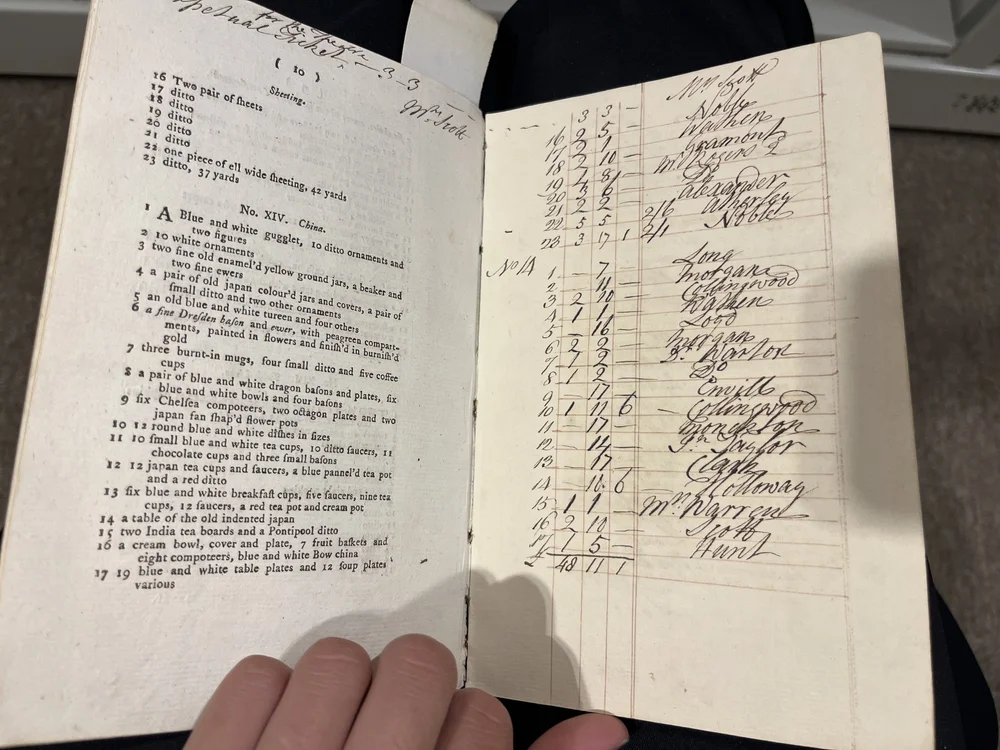 for the
perpetual Ticket — 3-3
Mrs. Scott
( 10 )
Sheeting.
16 Two pair of sheets
17 ditto
18 ditto
19 ditto
20 ditto
21 ditto
22 one piece of ell wide sheeting, 42 yards
23 ditto, 37 yards
No. XIV. China.
1 A Blue and white gugglet, 10 ditto ornaments and
two figures
2 10 white ornaments
3 two fine old enamel'd yellow ground jars, a beaker and
two fine ewers
4 a pair of old japan colour'd jars and covers, a pair of
small ditto and two other ornaments
5 an old blue and white tureen and four others
6 a fine Dresden bason and ewer, with peagreen compart-
ments, painted in flowers and finish'd in burnish'd
gold
7 three burnt-in mugs, four small ditto and five coffee
cups
8 a pair of blue and white dragon basons and plates, six
blue and white bowls and four basons
9 six Chelsea compoteers, two octagon plates and two
japan fan shap'd flower pots
10 12 round blue and white dishes in sizes
11 10 small blue and white tea cups, 10 ditto saucers, 11
chocolate cups and three small basons
12 12 japan tea cups and saucers, a blue pannel'd tea pot
and a red ditto
13 six blue and white breakfast cups, five saucers, nine tea
cups, 12 saucers, a red tea pot and cream pot
14 a table of the old indented japan
15 two India tea boards and a Pontipool ditto
16 a cream bowl, cover and plate, 7 fruit baskets and
eight compoteers, blue and white Bow china
17 19 blue and white table plates and 12 soup plates
various
3 3 — Mrs Scott
16 2 5 — Noble
17 2 1
18 2 10 —
19 1 8
20 3 6 — Do
21 2 2 — Alexander
22 5 5 — 2/6 Atherley
23 3 17 1 2/1 Noble
No 14
1 — 7 — Long
2 — 11 — Morgan
3 2 10 — Collingwood
4 1 1 —
5 — 16 —
6 2 2 — Morgan
7 2 — Warton
8 1 2 — Do
9 — 17 — Envill
10 1 11 6 — Collingwood
11 — 17 — Monckton
12 — 14 — Jn Taylor
13 — 17 — Clark
14 — 16 6 Holloway
15 1 1 — Mrs Warren
16 2 10 — Scott
17 1 5 — Hunt
48 11 1